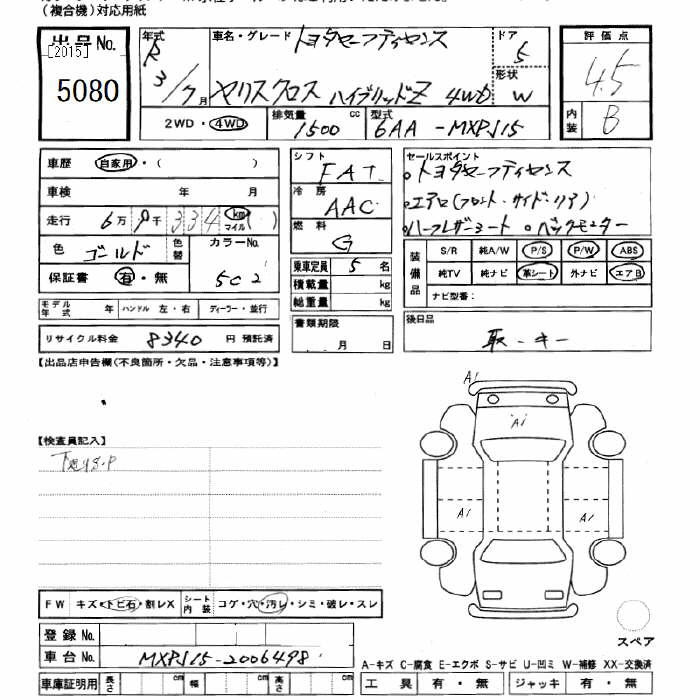 （複合機）対応用紙
出品No.
[2015]
5080
年式 R 3/7月
車名・グレード トヨタセーフティセンス
ヤリスクロス ハイブリッドZ 4WD
ドア 5
形状 W
評価点 4.5
内装 B
2WD・4WD
排気量 1500 cc
型式 6AA-MXPJ15
車歴 自家用・（ ）
車検 年 月
走行 6万9千334 km マイル（ ）
色 ゴールド 色替 カラーNo. 5C2
保証書 有・無
モデル年式 年 ハンドル 左・右 ディーラー・並行
リサイクル料金 8340 円 預託済
シフト FAT
冷房 AAC
燃料 G
乗車定員 5 名
積載量 kg
総重量 kg
書類期限 月 日
セールスポイント
トヨタセーフティセンス
エアロ(フロント・サイド・リア)
ハーフレザーシート バックモニター
装備品 S/R 純A/W P/S P/W ABS
純TV 純ナビ 革シート 外ナビ エアB
ナビ型番：
後日品
取・キー
【出品店申告欄(不良箇所・欠品・注意事項等)】
【検査員記入】
下廻りS.P
A1
A1
A1
A1
FW キズ・トビ石・割レX シート内装 コゲ・穴・汚レ・シミ・破レ・スレ
スペア
登録No.
車台No. MXPJ15-2006498
A-キズ C-腐食 E-エクボ S-サビ U-凹ミ W-補修 XX-交換済
車庫証明用 長さ cm 幅 cm 高さ cm
工具 有・無 ジャッキ 有・無